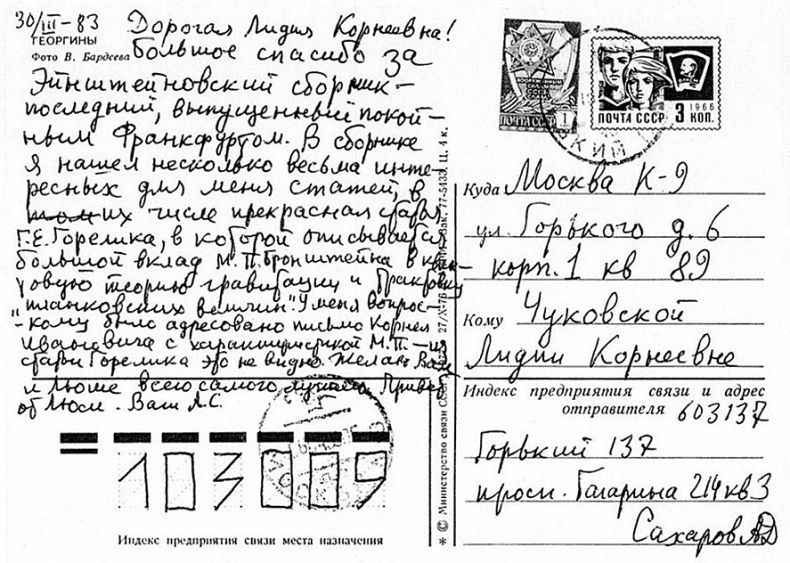 30/III-83
ГЕОРГИНЫ
Фото В. Бардеева
Дорогая Лидия Корнеевна!
Большое спасибо за
Эйнштейновский сборник -
последний, выпущенный покой-
ным Франкфуртом. В сборнике
я нашел несколько весьма инте-
ресных для меня статей, в
том их числе прекрасная статья
Г.Е. Горелика, в которой описывается
большой вклад М.П. Бронштейна в кван-
товую теорию гравитации и трактовку
"планковских величин". У меня вопрос-
- кому было адресовано письмо Корнея
Ивановича с характеристикой М.П. - из
статьи Горелика это не видно. Желаю Вам
и Люше всего самого лучшего. Привет
от Люси. Ваш А.С.
103009
Индекс предприятия связи места назначения
ПОЧТА СССР 1
ПОЧТА СССР 3 КОП.
1966
Куда Москва К-9
ул. Горького д. 6
корп. 1 кв 89
Кому Чуковской
Лидии Корнеевне
Индекс предприятия связи и адрес
отправителя 603137
Горький 137
просп. Гагарина 214 кв 3
Сахаров АД
* © Министерство связи СССР 27/X-76 Зак. 77-5433. Ц. 4 к.